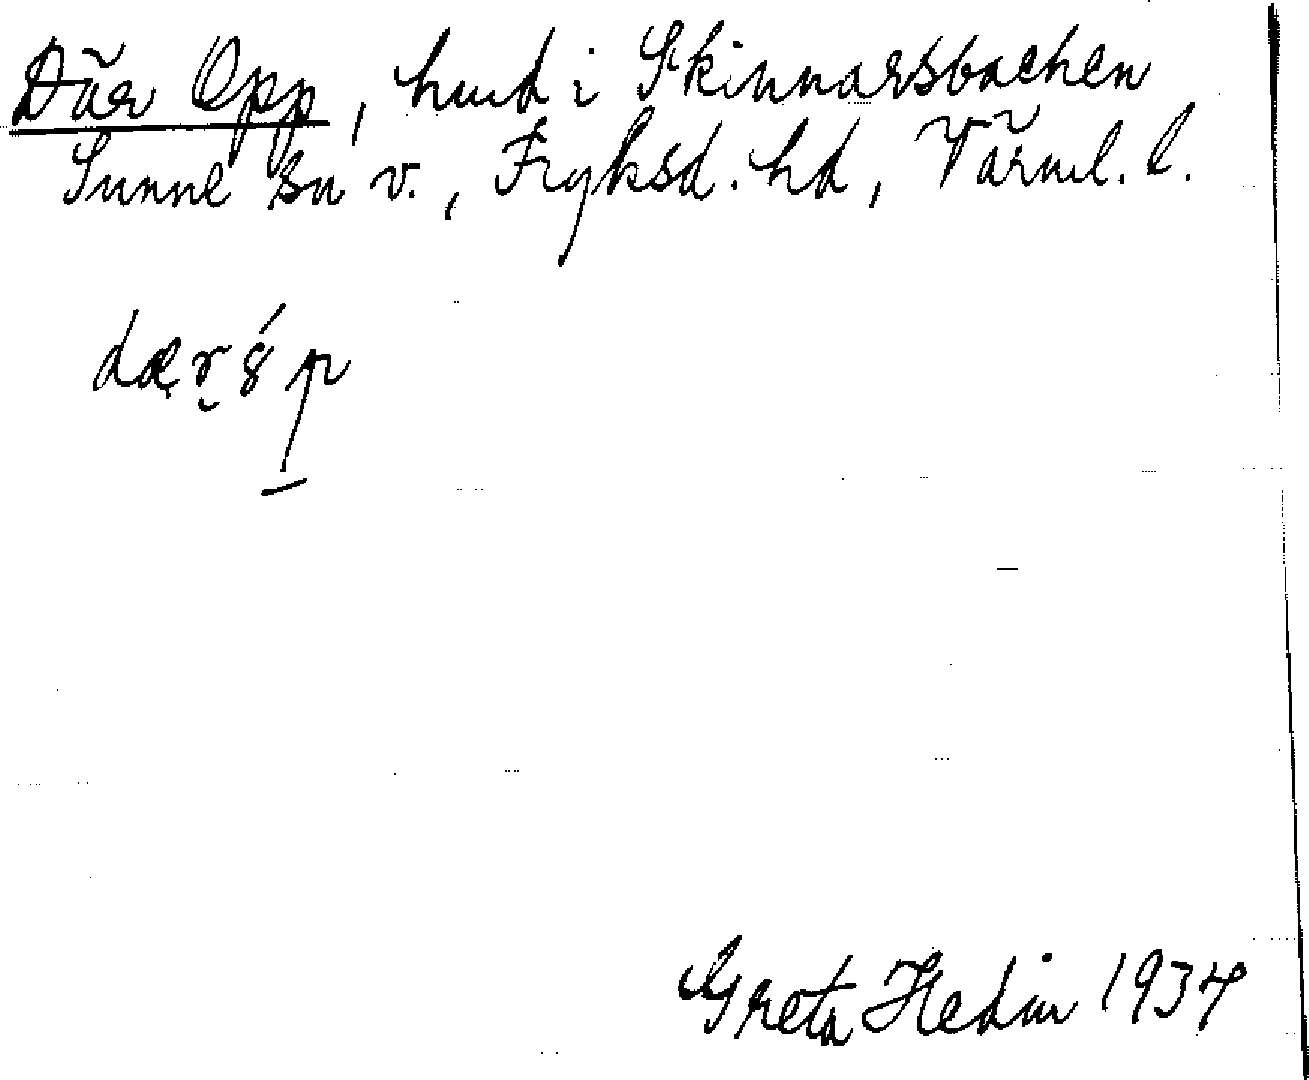 Där Opp, hund i Skinnarsbacken
Sunne sn v., Fryksd. hd, Värml. l.
dær ȣ́p
Greta Hedin 1934